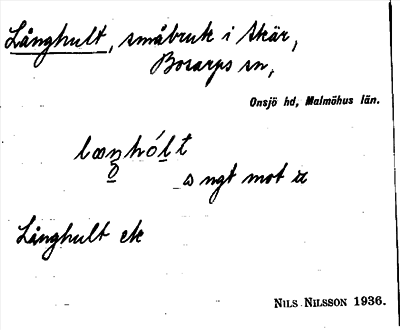 Långhult, småbruk i Skär,
Bosarps sn,
Onsjö hd, Malmöhus län.
lɷŋhólt
ɷ ngt mot æ
Långhult ek
NILS NILSSON 1936.